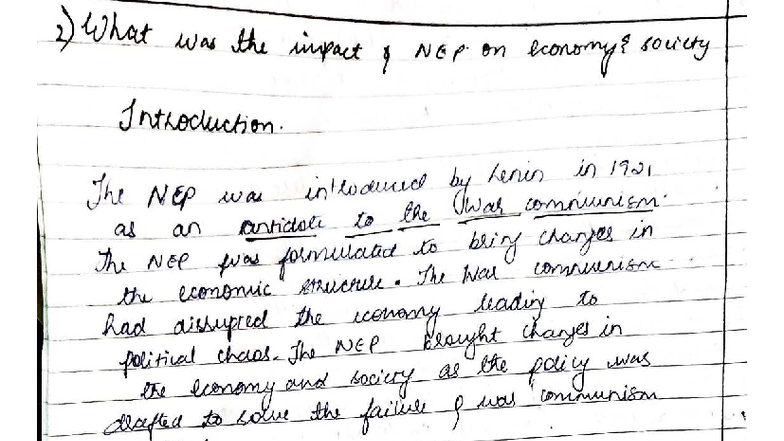 2) What was the impact of NEP on economy & society
Introduction.
The NEP was introduced by Lenin in 1921
as an antidote to the War communism.
The NEP was formulated to bring changes in
the economic structure. The War communism
had disrupted the economy leading to
political chaos. The NEP brought changes in
the economy and society as the policy was
drafted to solve the failure of war communism